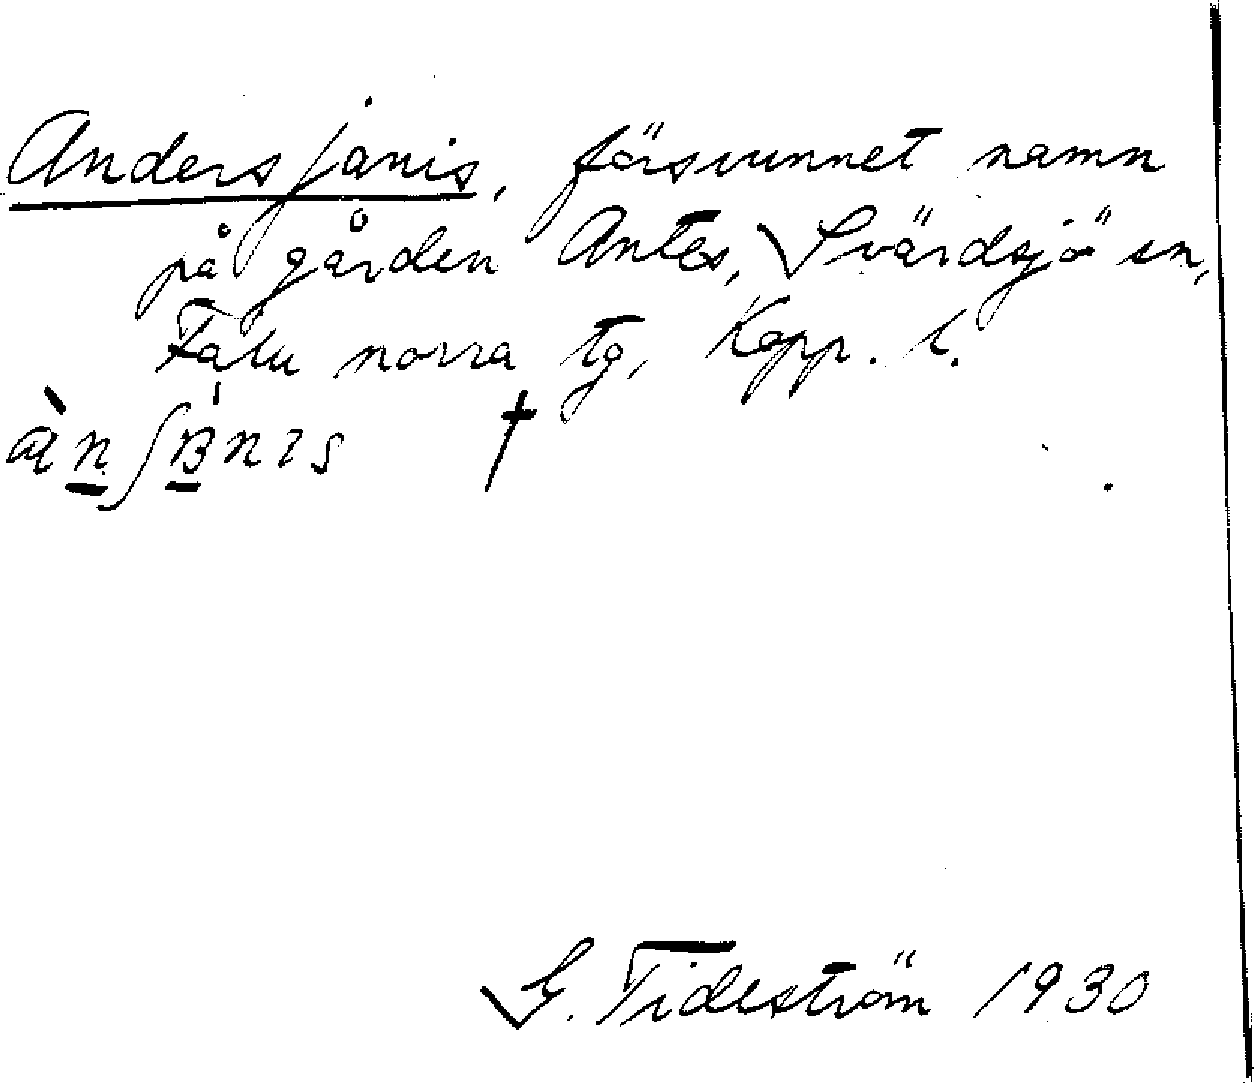 Andersjanis, försvunnet namn
på gården Antes, Svärdsjö sn,
Falu norra tg, Kopp. l.
àn∫ʙnıs †
G. Tideström 1930